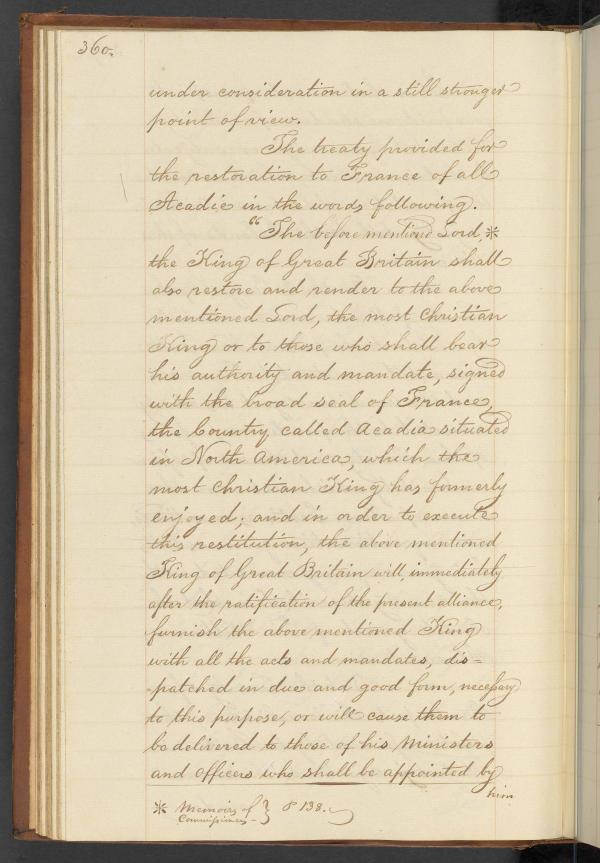 360.
under consideration in a still stronger
point of view.
The treaty provided for
the restoration to France of all
Acadie in the words following.
"The before mentioned Lord,*
the King of Great Britain shall
also restore and render to the above
mentioned Lord, the most Christian
King or to those who shall bear
his authority and mandate, signed
with the broad seal of France,
the Country called Acadia situated
in North America, which the
most Christian King has formerly
enjoyed; and in order to execute
this restitution, the above mentioned
King of Great Britain will, immediately
after the ratification of the present alliance,
furnish the above mentioned King
with all the acts and mandates, dis=
-patched in due and good form, necessary
to this purpose, or will cause them to
be delivered to those of his Ministers
and Officers who shall be appointed by
him
* Memoirs of } 138.
Commissioners -